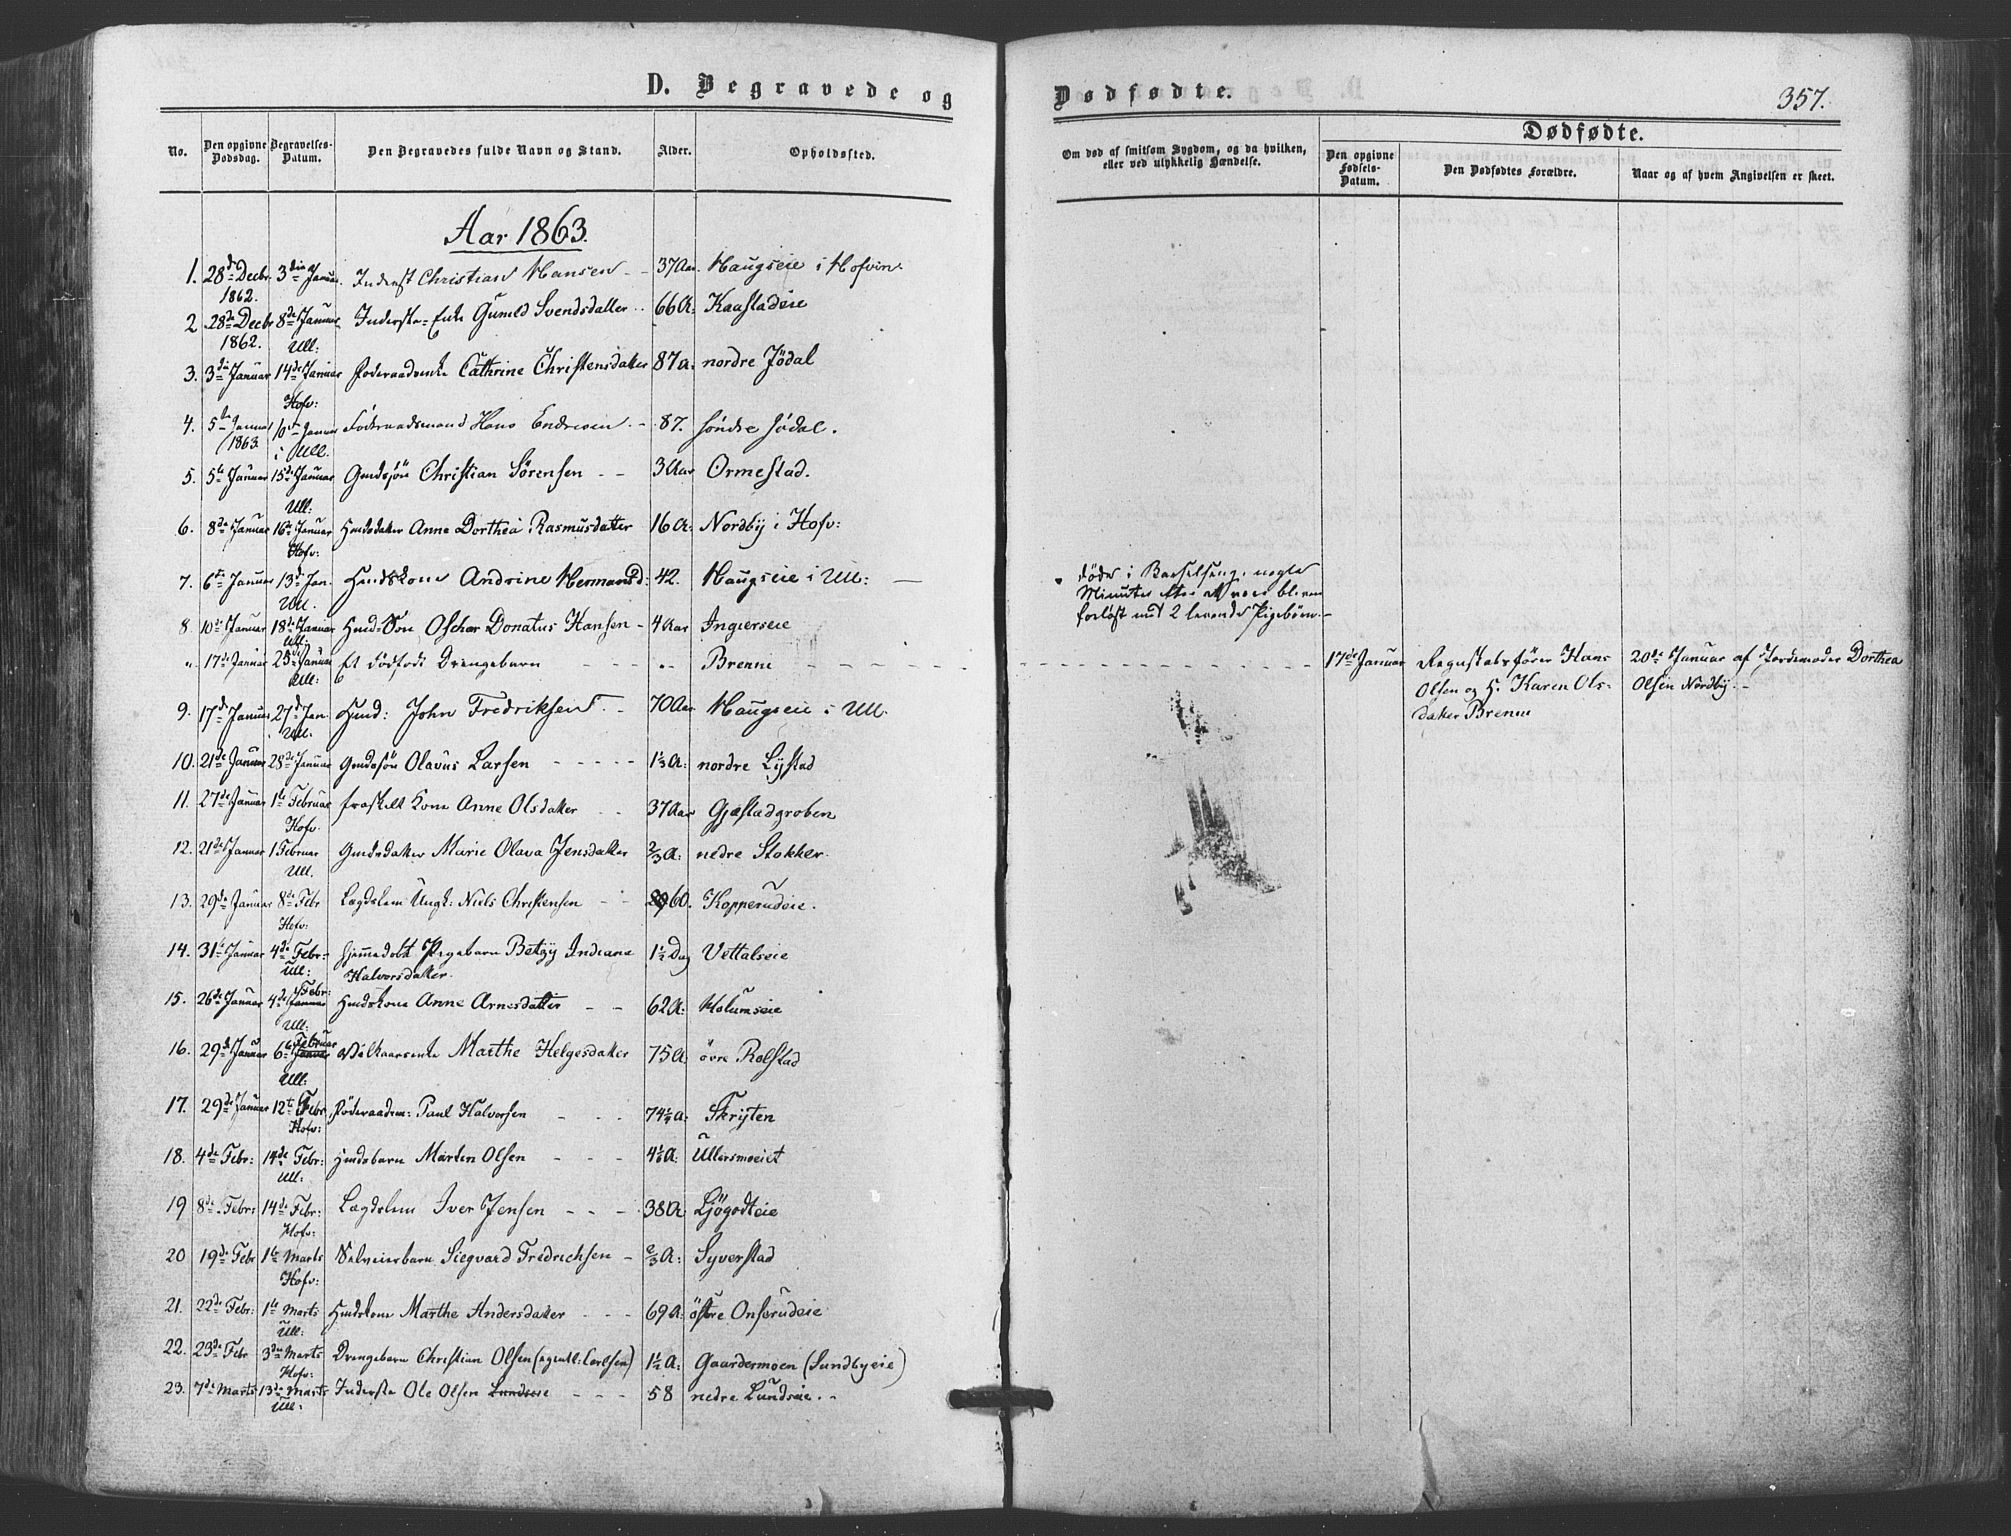 D. Begravede og Dødfødte. 357.
No. Den opgivne Dødsdag. Begravelses-Datum. Den Begravedes fulde Navn og Stand. Alder. Opholdssted. Om død af smitsom Sygdom, og da hvilken, eller ved ulykkelig Hændelse. Dødfødte. Den opgivne Fødsels-Datum. Den Dødfødtes Forældre. Naar og af hvem Angivelsen er skeet.
Aar 1863.
1. 28de Decbr. 1862. 3die Januar. Inderst Christian Hansen - - 37 Aar. Haugseie i Hofvin.
2 28de Decbr 1862. 8de Januar Ull: Inderste-Enke Gunild Svendsdatter .. 66 A: Kaastadeie
3. 3die Januar 14de Januar Hofv: Føderaadsenke Cathrine Christensdatter 87 A: nordre Jödal
4. 5te Januar 1863. 10de Januar i Ull. Föderaadsmand Hans Endresen - 87. söndre Jödal.
5. 5te Januar 15de Januar Ull: Gmdssön Christian Sörensen - - 3 Aar Ormestad.
6. 8de Januar 16de Januar Hofv: Hmdsdatter Anne Dorthea Rasmusdatter 16 A: Nordby i Hofv:
7. 6te Januar 13de Jan. Ull. Hmdskone Andrine Hermansd: 42. Haugseie i Ull: — döde i Barselseng, nogle Minutter efter at være bleven forløst med 2 levende Pigebörn. -
8. 10de Januar 18de Januar Ull: Hmd:Sön Oscher Donatus Hansen - 4 Aar Ingierseie
„ 17de Januar 25de Januar Ull: Et dödfödt Drengebarn - - - - „ Brenne - - - - 17de Januar Regnskabsfører Hans Olsen og H. Karen Olsdatter Brenne 20de Januar af Jordemoder Dorthea Olsen Nordby. -
9. 17de Januar 27de Jan. Ull. Hmd: John Fredriksen. - 70 Aar Haugseie i Ull.
10. 21de Januar 28de Januar Gmdssön Olavus Larsen - - - - - 1⅓ A: nordre Lystad
11. 27de Januar 1te Februar Hofv. fraskilt Kone Anne Olsdatter - - 37 Aar Gjestadgroben
12. 21de Januar 1 Februar Ull. Gmdsdatter Marie Olava Jensdatter ⅔ A: nedre Stokker.
13. 29de Januar 8de Febr Hofv: Lægdslem Ungk: Niels Christensen - - 60. Kopperudeie.
14. 31te Januar 4de Febr: Ull: hjemmedöbt Pigebarn Betzy Indiane Halvorsdatter. 1½ Dag Vettalseie
15. 26de Januar 4de Januar Febr: Ull: Hmdskone Anne Arnesdatter - - 62 A: Holumseie
16. 29de Januar 6te Januar Februar Ull: Vilkaarsenke Marthe Helgesdatter 75 A: övre Rolstad
17. 29de Januar 12te Febr Hofv: Föderaadsm: Paul Halvorsen - - - 74½ A: Skryten
18. 4de Febr: 14de Febr: Ull: Hmdsbarn Marten Olsen - - - 4⅙ A: Ullersmoeiet
19 8de Febr: 14de Febr: Hofv: Lægdslem Iver Jensen - - - 38 A: Ljögodteie
20 19de Febr 1te Marts Hofv: Selveierbarn Siegvard Fredrichsen - ⅔ A: Syverstad
21. 22de Febr: 1te Marts Ull: Hmdskone Marthe Andersdatter - - - 69 A: östre Onsrudeie
22. 23de Febr 3die Marts Hofv: Drengebarn Christian Olsen (egentl: Carlsen) 1½ A: Gaardermoen (Sundbyeie)
23. 7de Marts 13de Marts Ull: Inderste Ole Olsen Lundseie - - - 58 nedre Lundseie. -